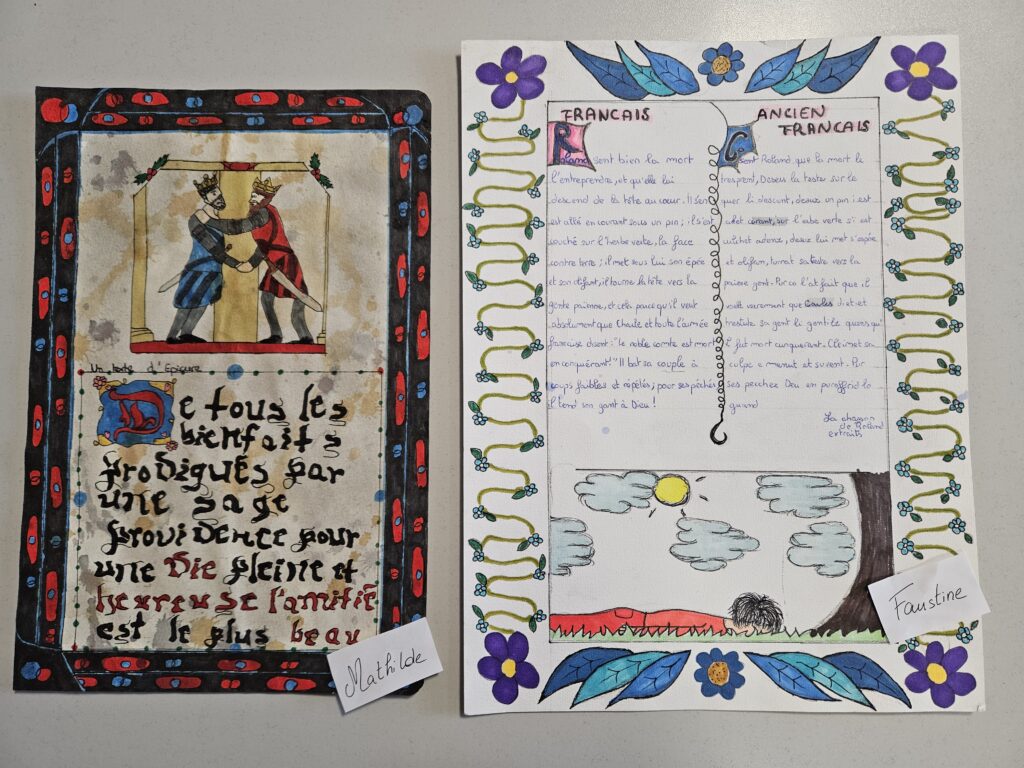 Un texte d'Epicure
De tous les
bienfaits
prodigués par
une sage
providence pour
une Vie pleine et
heureuse l'amitié
est le plus beau
Mathilde
FRANCAIS
Roland sent bien la mort
l'entreprendre, et qu'elle lui
descend de la tête au cœur. Il s'en
est allé en courant sous un pin ; il s'est
couché sur l'herbe verte, la face
contre terre ; il met sous lui son épée
et son olifant, il tourne la tête vers la
gente païenne, et cela parce qu'il veut
absolument que Charles et toute l'armée
française disent : "le noble comte est mort
en conquérant !" Il bat sa coulpe à
coups faibles et répétés ; pour ses péchés
il tend son gant à Dieu !
ANCIEN
FRANCAIS
sent Roland que la mort le
tresprent, Deseur la teste sur le
quer li descent, desuz un pin i est
alet curant, sur l'erbe verte si est
culchet adenz, desuz lui met s'espee
et olifan, turnat sa teste vers la
paiene gent. Pur ço l'at fait que il
voelt veirement que Carles diet et
trestute sa gent li gentilz quens qu'
il fut mort cunquerant. Cleimet sa
culpe e menut et suvent. Pur
ses pecchez Deu en puroffrid lo
guant
La chanson
de Roland
extraits
Faustine